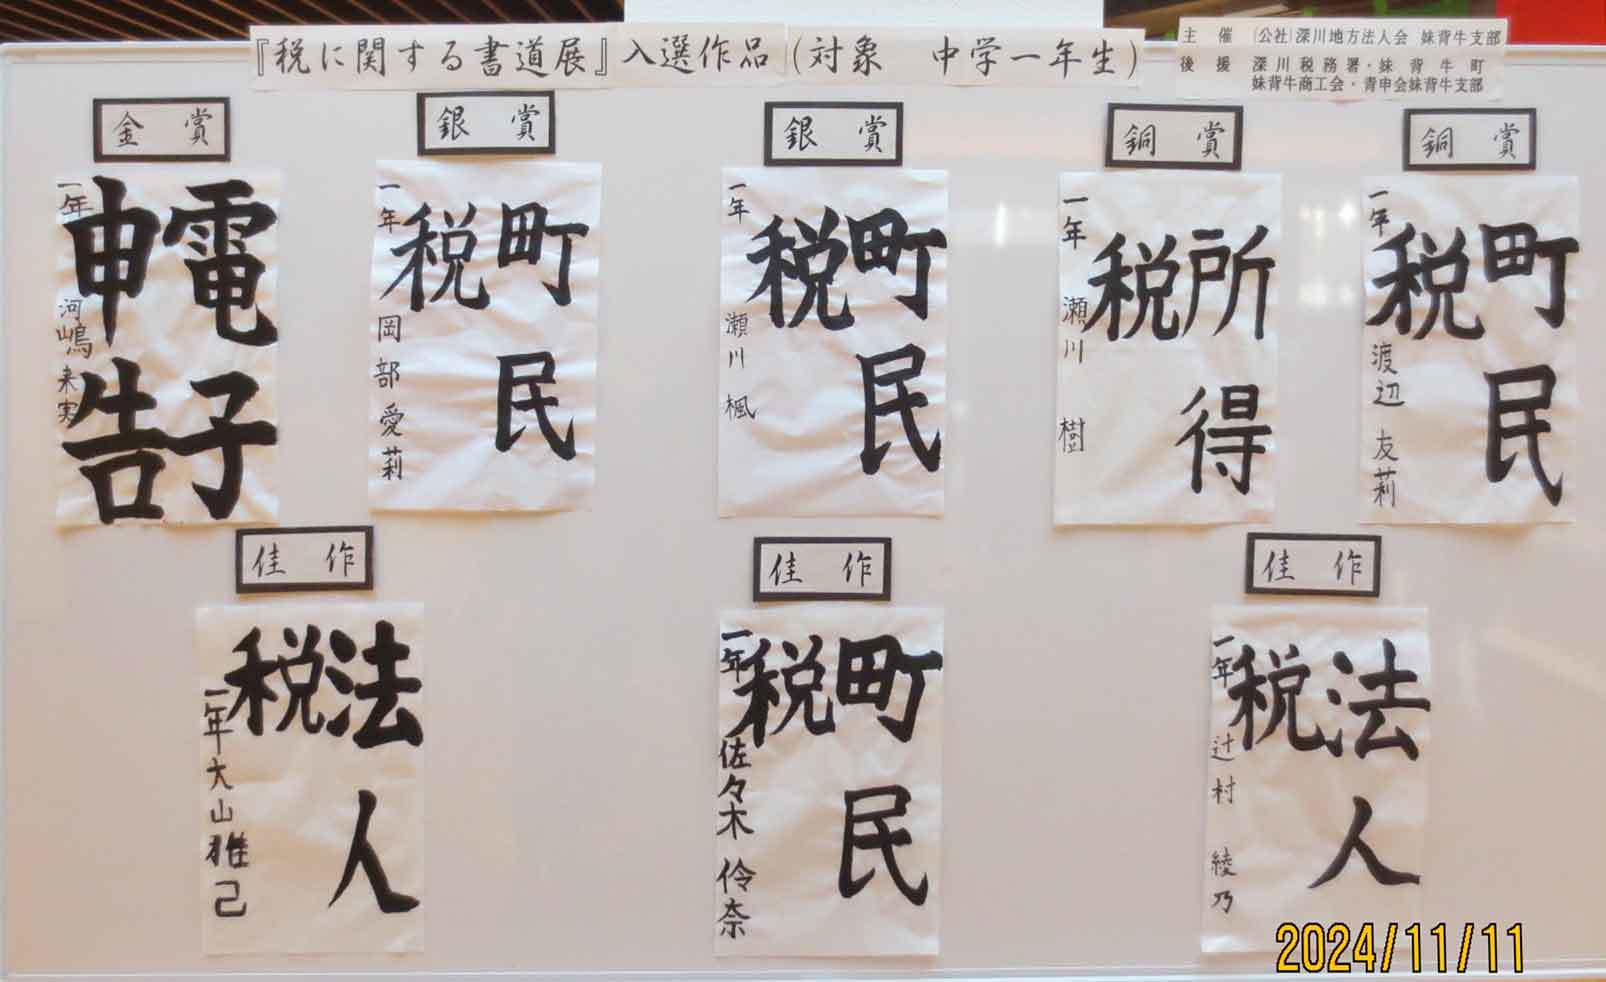 『税に関する書道展』入選作品(対象　中学一年生)
主　催　(公社)深川地方法人会　妹背牛支部
後　援　深川税務署・妹背牛町
妹背牛商工会・青申会妹背牛支部
金　賞
電子
申告
一年　河嶋　来実
銀　賞
町民
税
一年　岡部　愛莉
銀　賞
町民
税
一年　瀬川　楓
銅　賞
所得
税
一年　瀬川　樹
銅　賞
町民
税
一年　渡辺　友莉
佳　作
法人
税
一年　大山雅己
佳　作
町民
税
一年　佐々木　伶奈
佳　作
法人
税
一年　辻村　綾乃
2024/11/11